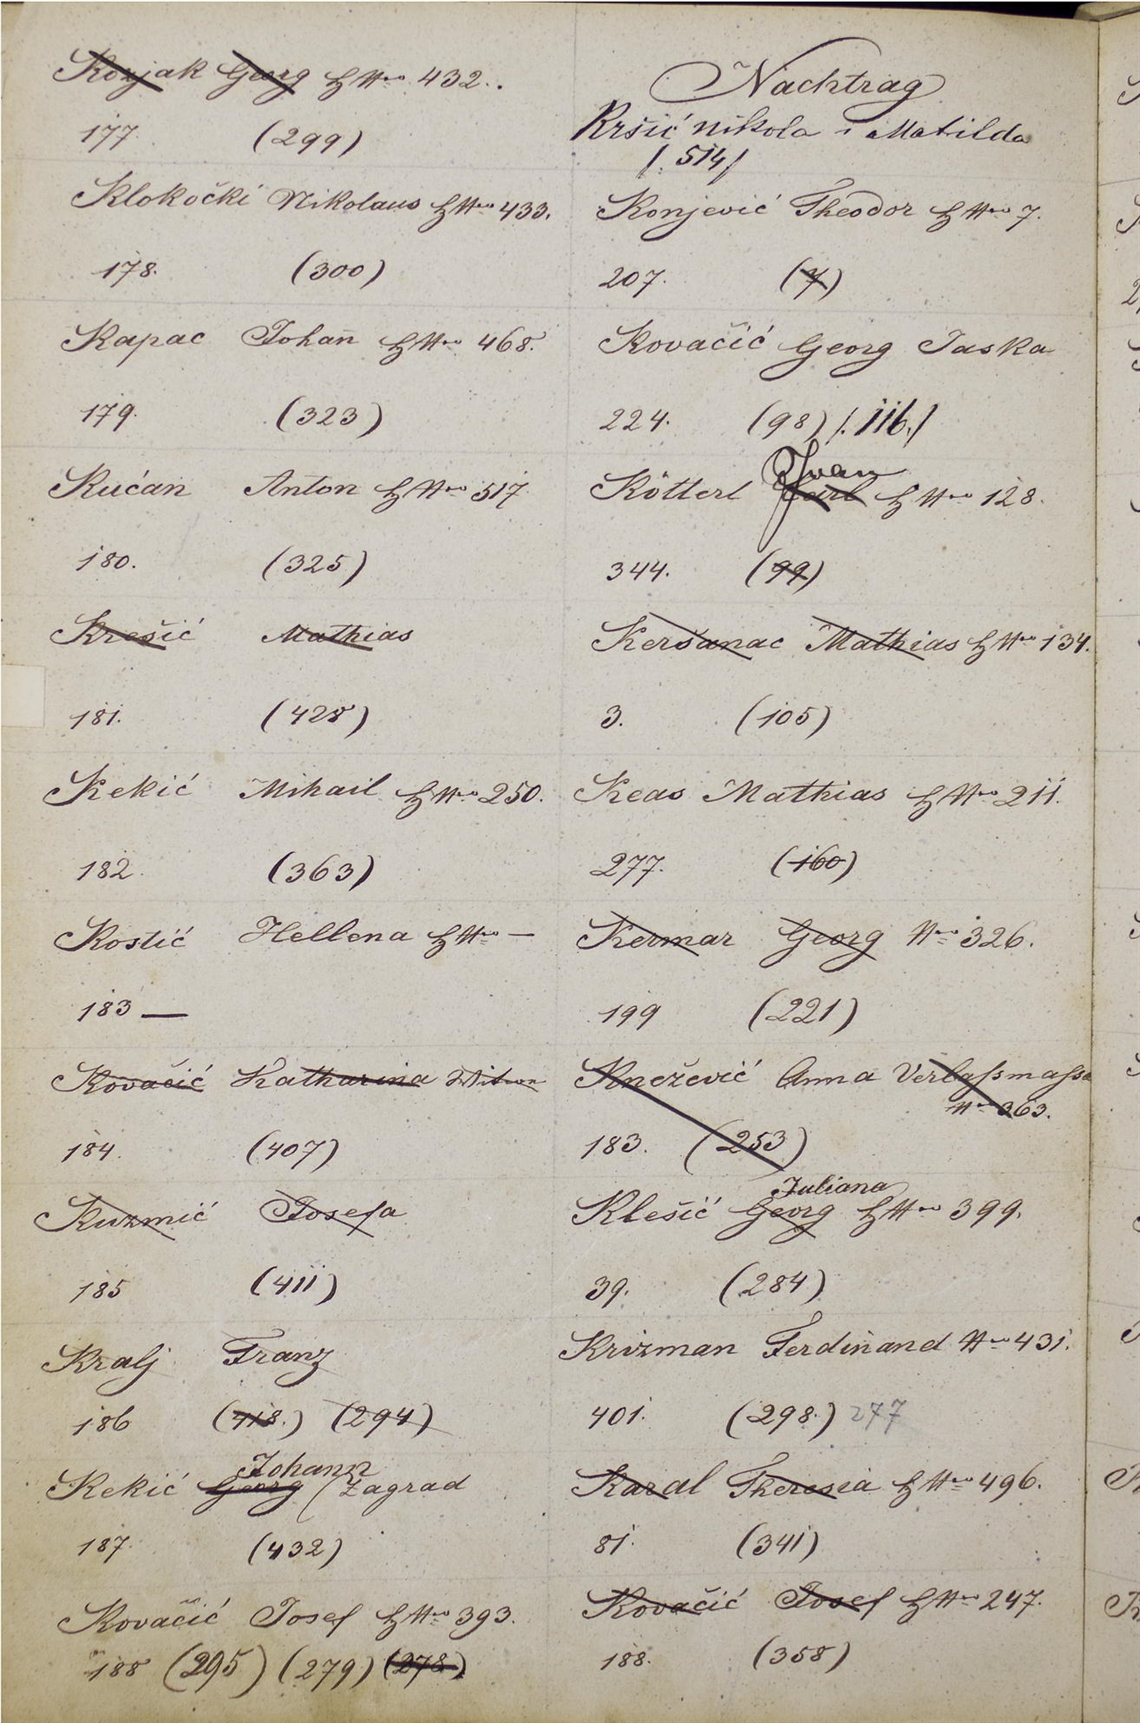 Kozjak Georg H Nro 432.
177. (299)
Klokočki Nikolaus H Nro 433.
178. (300)
Kapac Johan̄ H Nro 468.
179. (323)
Kućan Anton H Nro 517
180. (325)
Krešić Mathias
181. (428)
Kekić Mihail H Nro 250.
182. (363)
Kostić Hellena H Nro —
183 —
Kovačić Katharina Witwe
184. (407)
Kuzmić Josefa
185 (411)
Kralj Franz
186 (418.) (294)
Johann
Kekić Georg (Zagrad
187. (432)
Kovačić Josef H Nro 393.
188 (295) (279) (278)
Nachtrag
Kršić Nikola i Matilda
/. 514/
Konjević Theodor H Nro 7.
207. (7)
Kovačić Georg Jaska
224. (98) /. 116./
Ivan
Kötterl Karl H Nro 128.
344. (99)
Keršanac Mathias H Nro 134.
3. (105)
Keas Mathias H Nro 211.
277. (160)
Kermar Georg Nro 326.
199 (221)
Knežević Anna Verlaſsmaſse
Nro 363.
183. (253)
Juliana
Klešić Georg H Nro 399.
39. (284)
Krizman Ferdinand Nro 431.
401. (298.) 277
Karal Theresia H Nro 496.
81. (341)
Kovačić Josef H Nro 247.
188. (358)